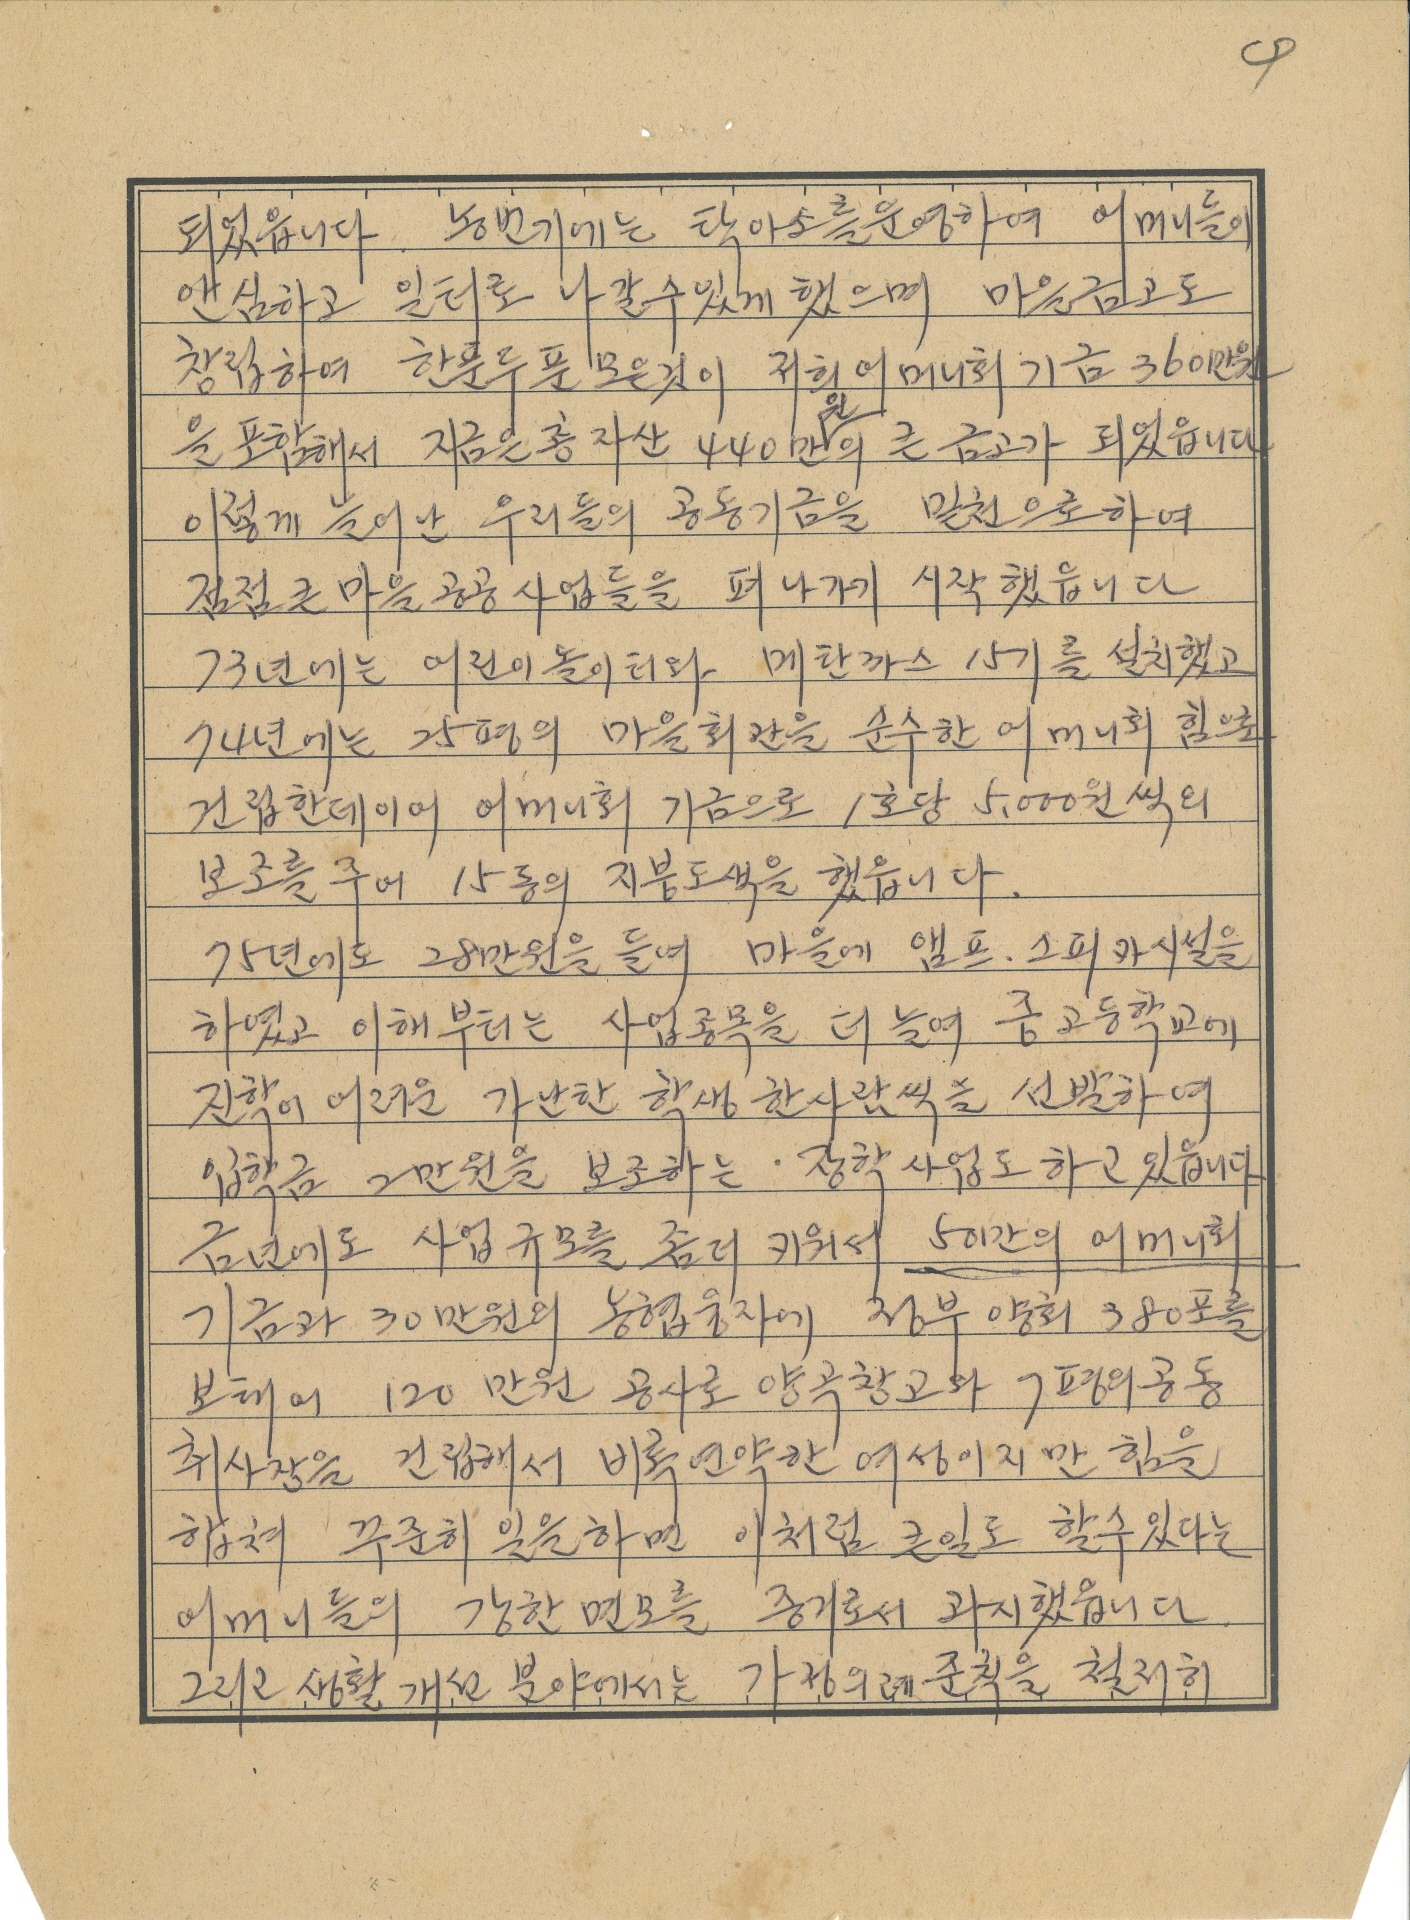 9
되었읍니다. 농번기에는 탁아소를운영하여 어머니들이
안심하고 일터로 나갈수있게 했으며 마을금고도
창립하여 한푼두푼 모은것이 저희어머니회 기금 360만원
을 포함해서 지금은 총자산 440만원의 큰 금고가 되었읍니다
이렇게 늘어난 우리들의 공동기금을 밑천으로하여
점점 큰 마을 공공사업들을 펴나가기 시작했읍니다
73년에는 어린이놀이터와 메탄까스 15기를 설치했고
74년에는 25평의 마을회관을 순수한 어머니회 힘으로
건립한데이어 어머니회 기금으로 1호당 5,000원씩의
보조를 주어 15동의 지붕도색을 했읍니다.
75년에도 28만원을 들여 마을에 앰프. 스피카시설을
하였고 이해부터는 사업종목을 더 늘여 중고등학교에
진학이 어려운 가난한 학생 한사람씩을 선발하여
입학금 2만원을 보조하는 . 장학사업도 하고 있읍니다
금년에도 사업규모를 좀더 키워서 어머니회
기금과 30만원의 농협융자에 정부 양회 380포를
보태어 120만원 공사로 양곡창고와 7평의공동
취사장을 건립해서 비록연약한 여성이지만 힘을
합쳐 꾸준히 일을하면 이처럼 큰일도 할수있다는
어머니들의 강한면모를 증거로서 과시했읍니다.
그리고 생활개선 분야에서는 가정의례준칙을 철저히